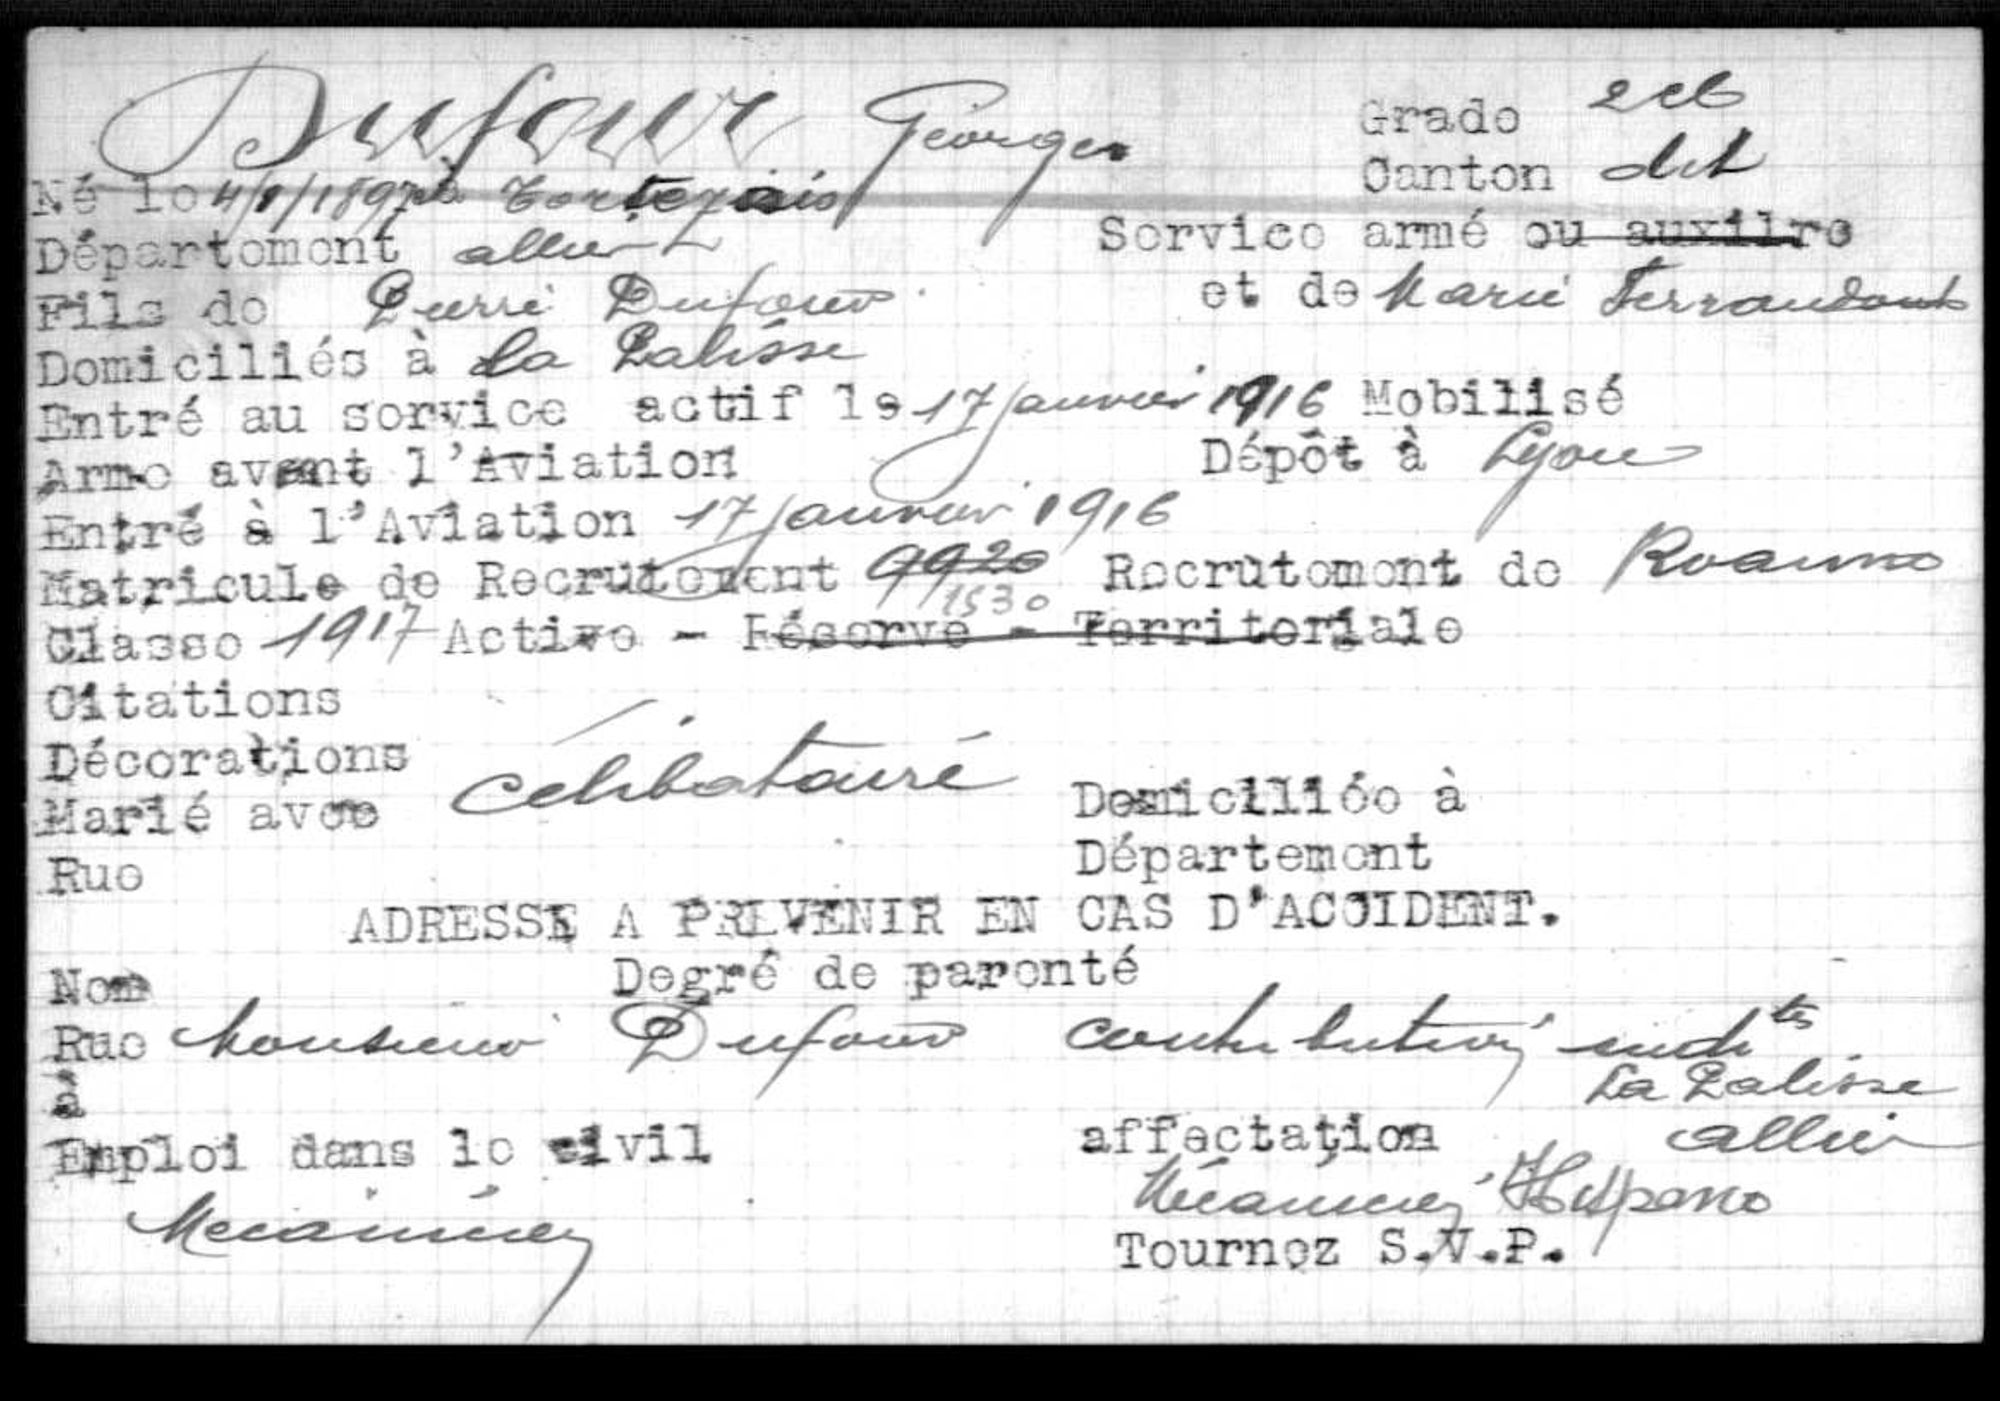 Dufour Georges Grade 2 cl
Né le 4/8/1897 à Tortezais Canton dit
Département allier Service armé ou auxilre
Fils de Pierre Dufour et de Marie
Domiciliés à La Palisse
Entré au service actif le 17 janvier 1916 Mobilisé
Arme avant l'Aviation Dépôt à Lyon
Entré à l'Aviation 17 janvier 1916
Matricule de Recrutement 9920 Recrutement de Roanne
1530
Classe 1917 Active - Réserve - Territoriale
Citations
Décorations
Marié avec célibataire Domiciliée à
Département
Rue
ADRESSE A PREVENIR EN CAS D'ACCIDENT.
Nom Degré de parenté
Rue Monsieur Dufour contributions indtes
à La Palisse
Emploi dans le civil affectation allier
Mécanicien Mécanicien Hispano
Tournez S.V.P.